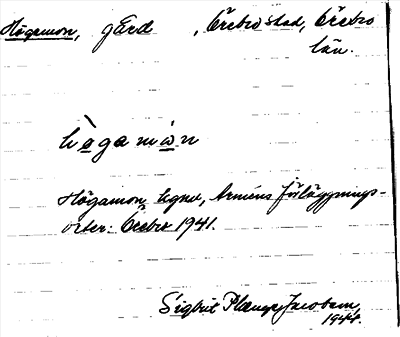 Högamon, gård , Örebro stad, Örebro
län.
hògamòn
Högamon, Armens Förläggnings-
orter: Örebro 1941.
Sigbrit Plænge Jacobson,
1948.